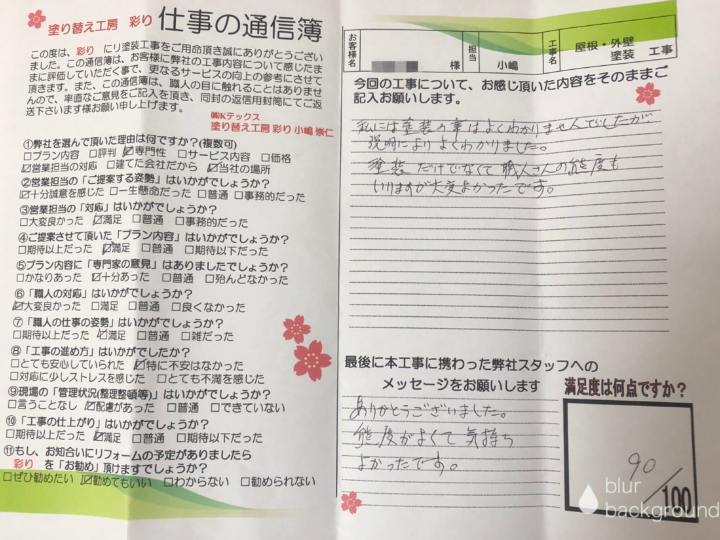 塗り替え工房 彩り 仕事の通信簿
この度は、彩り にリ塗装工事をご用命頂き誠にありがとうござい
ました。この通信簿は、お客様に弊社の工事内容について感じたま
まに評価していただく事で、更なるサービスの向上の参考にさせて
頂きます。また、この通信簿は、職人の目に触れることはありませ
んので、率直なご意見をご記入を頂き、同封の返信用封筒にてご返
送下さいます様お願い申し上げます。
㈱Kテックス
塗り替え工房 彩り 小嶋 崇仁
①弊社を選んで頂いた理由は何ですか?(複数可)
□プラン内容 □評判 ☑専門性 □サービス内容 □価格
☑営業担当の対応 □建てた会社だから ☑当社の場所
②営業担当の「ご提案する姿勢」はいかがでしょうか?
☑十分誠意を感じた □一生懸命だった □普通 □事務的だった
③営業担当の「対応」はいかがでしょうか?
□大変良かった ☑満足 □普通 □事務的だった
④ご提案させて頂いた「プラン内容」はいかがでしょうか?
□期待以上だった ☑満足 □普通 □期待以下だった
⑤プラン内容に「専門家の意見」はありましたでしょうか?
□かなりあった ☑十分あった □普通 □殆んどなかった
⑥「職人の対応」はいかがでしょうか?
☑大変良かった □満足 □普通 □良くなかった
⑦「職人の仕事の姿勢」はいかがでしょうか?
□期待以上だった ☑満足 □普通 □雑だった
⑧「工事の進め方」はいかがでしたか?
□とても安心していられた ☑特に不安はなかった
□対応に少しストレスを感じた □とても不満を感じた
⑨現場の「管理状況(整理整頓等)」はいかがでしょうか?
□言うことなし ☑配慮があった □普通 □できていない
⑩「工事の仕上がり」はいかがでしょうか?
□期待以上だった ☑満足 □普通 □期待以下だった
⑪もし、お知合いにリフォームの予定がありましたら
彩り を「お勧め」頂けますでしょうか?
□ぜひ勧めたい ☑勧めてもいい □わからない □勧められない
お客様名 様 担当 小嶋 工事名 屋根・外壁
塗装 工事
今回の工事について、お感じ頂いた内容をそのままご
記入お願いします。
私には塗装の事はよくわかりませんでしたが
説明によりよくわかりました。
塗装だけでなくて職人さんの態度も
いりますが大変よかったです。
最後に本工事に携わった弊社スタッフへの
メッセージをお願いします
ありがとうございました。
態度がよくて気持ち
よかったです。
満足度は何点ですか?
90/100
blur
background